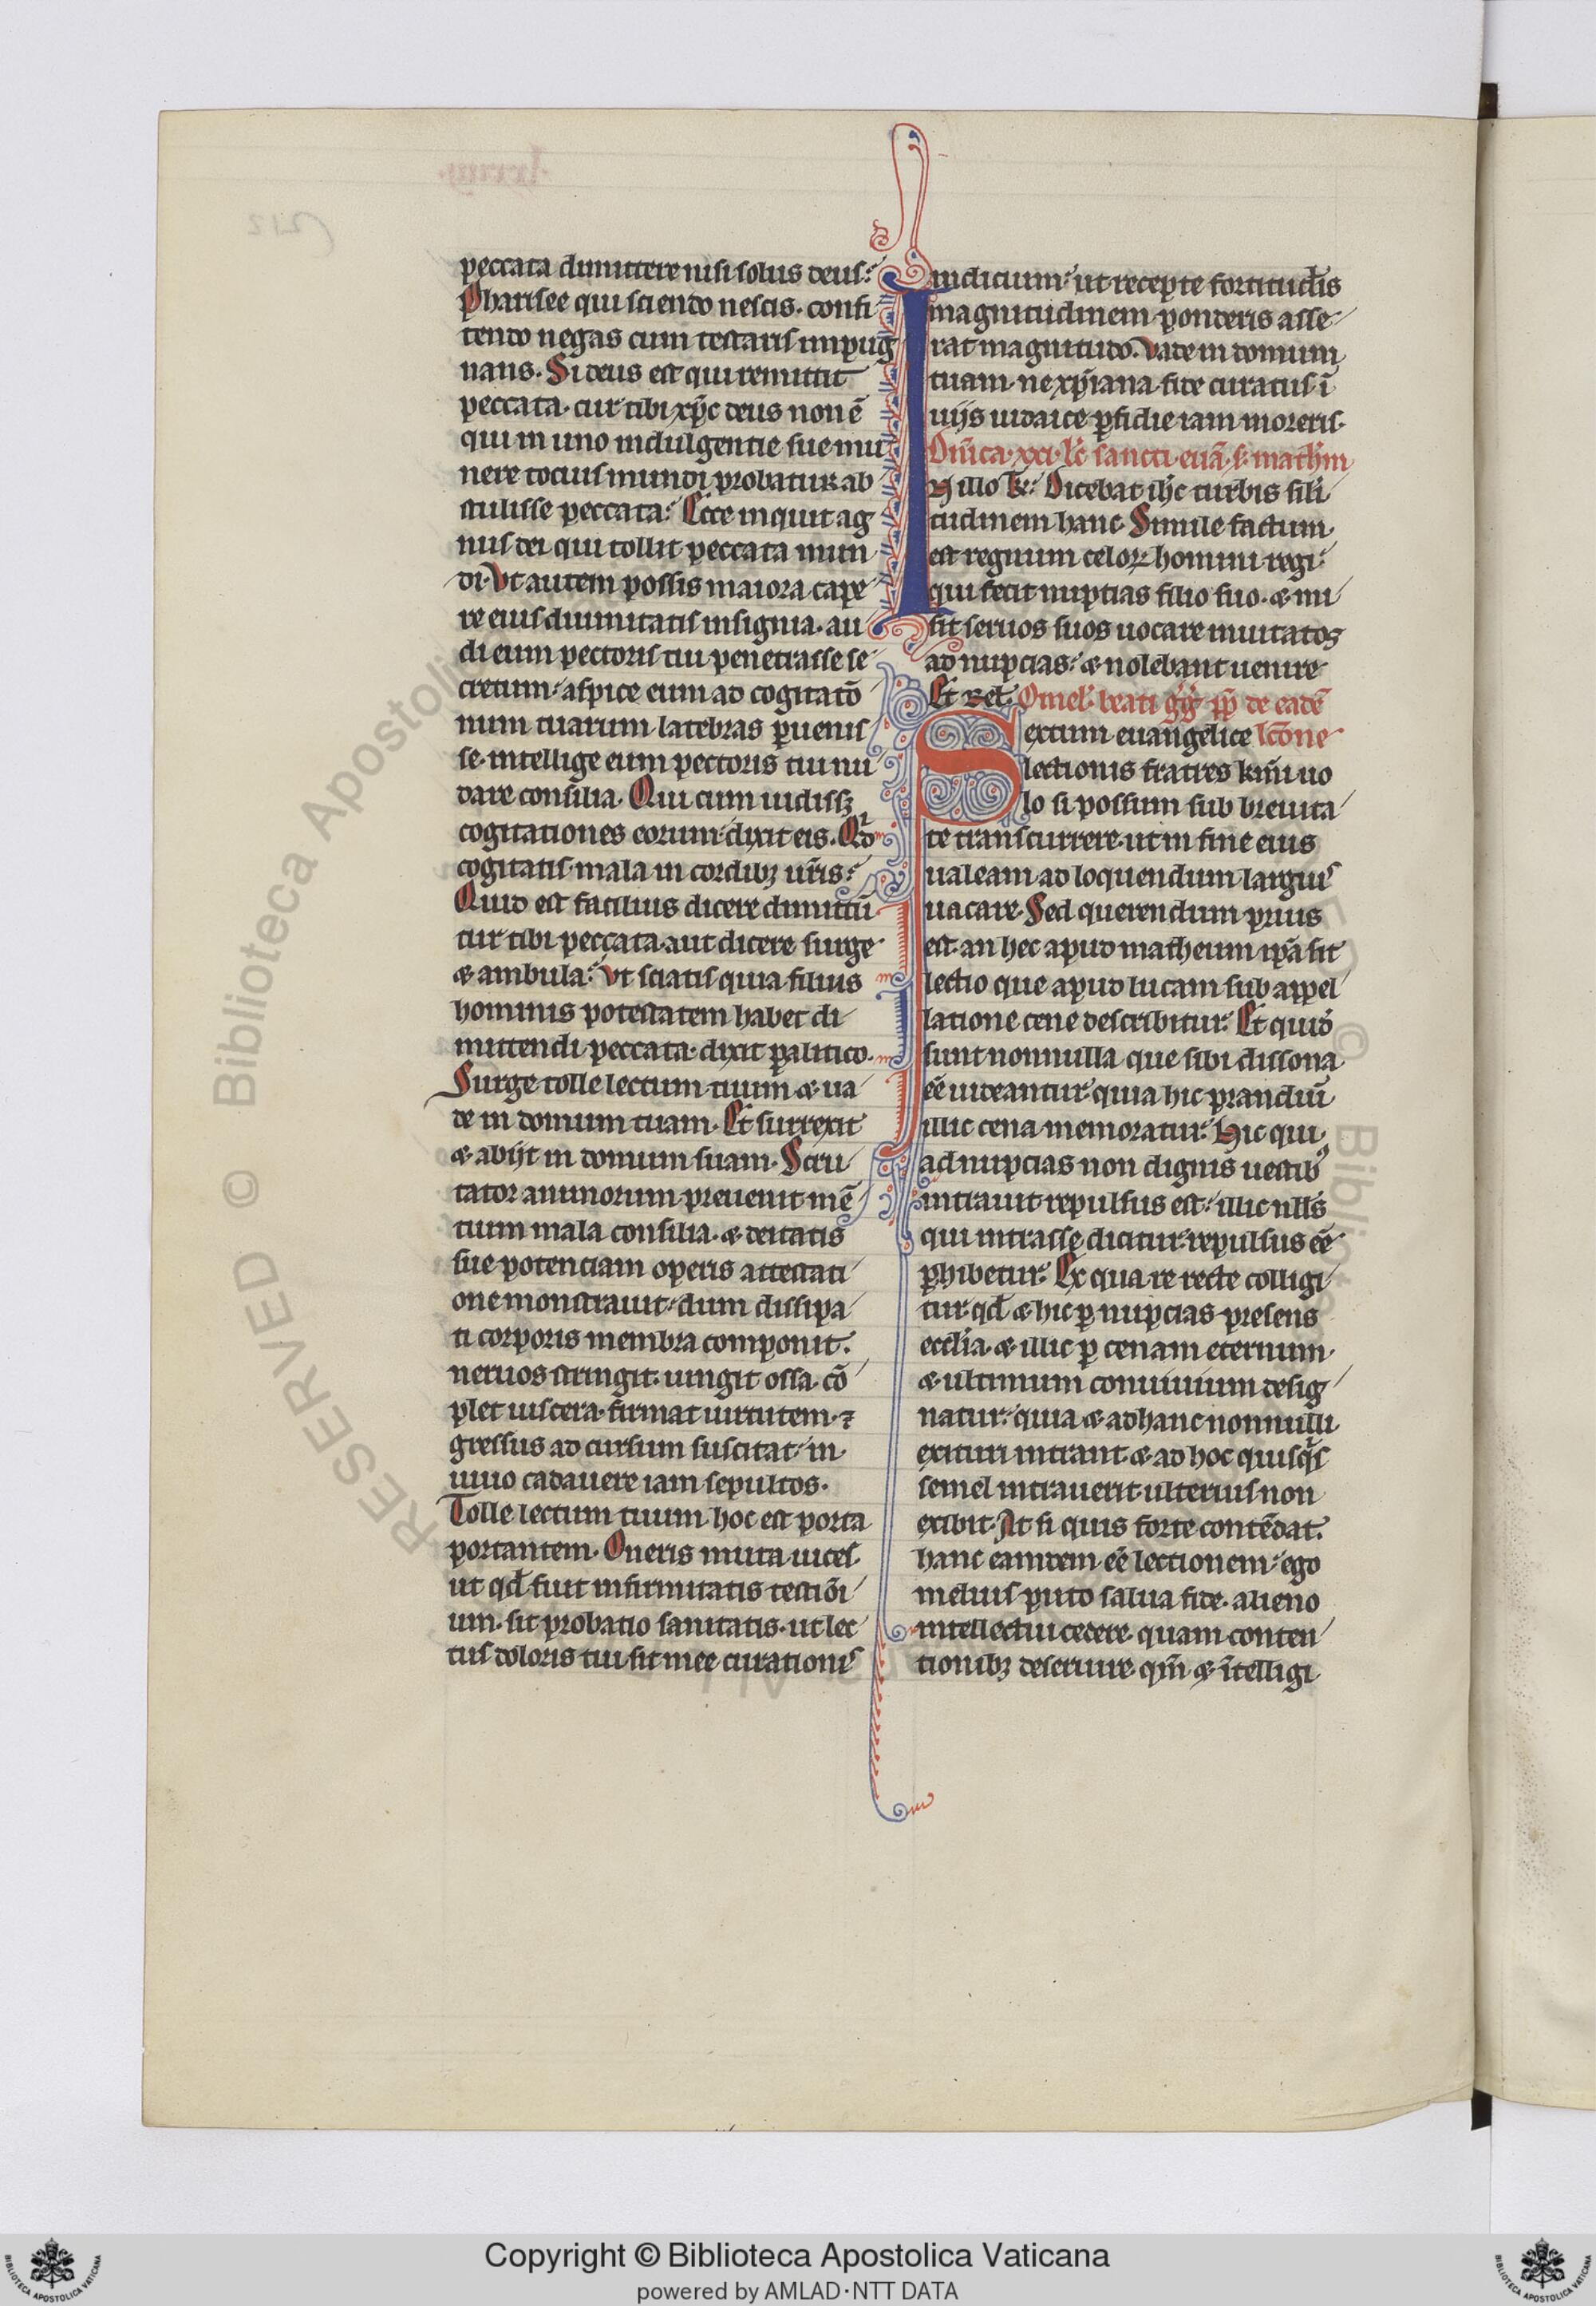 peccata dimittere nisi solus deus.
Pharisee qui sciendo nescis. confi
tendo negas cum testaris impug
nans. Si deus est qui remittit
peccata. cur tibi xp̄c deus non ē
qui in uno indulgentie sue mu
nere tocius mundi probatur ab
stulisse peccata. Ecce inquit ag
nus dei qui tollit peccata mun
di. Vt autem possis maiora cape
re eius diuinitatis insignia. au
di eum pectoris tui penetrasse se
cretum. aspice eum ad cogitatō
num tuarum latebras ꝑuenis
se. intellige eum pectoris tui nu
dare consilia. Qui cum uidissꝫ
cogitationes eorum dixit eis. Qͥd
cogitatis mala in cordibꝫ ur̄is.
Quid est facilius dicere dimittū
tur tibi peccata. aut dicere surge
& ambula. Vt sciatis quia filius
hominis potestatem habet di
mittendi peccata. dixit ꝑalitico.
Surge tolle lectum tuum & ua
de in domum tuam. Et surrexit
& abijt in domum suam. Scru
tator animorum preuenit mē
tium mala consilia. & deitatis
sue potentiam operis attestati
one monstrauit. dum dissipa
ti corporis membra componit.
neruos stringit. iungit ossa. cō
plet uiscera. firmat uirtutem. ⁊
gressus ad cursum suscitat. in
uiuo cadauere iam sepultos.
Tolle lectum tuum. hoc est porta
portantem. Oneris muta uices.
ut qd̄ fuit infirmitatis testiōi
um. sit probatio sanitatis. ut lec
tus doloris tui sit mee curationis
indicium. ut recepte fortitud̄is
magnitudinem ponderis asse
rat magnitudo. Vade in domum
tuam. ne xp̄iana fide curatus ī
uijs iudaice ꝑfidie iam moreris.
Dn̄ica. xxi. lc̄ sancti euā. s. mathm̄
N illo t̄: Dicebat ih̄c turbis sili
tudinem hanc. Simile factum
est regnum celoꝝ homini regi.
qui fecit nuptias filio suo. & mi
sit seruos suos uocare inuitatos
ad nupcias. & nolebant uenire
Et rel. Omel. beati gḡ pp̄ de eadē
lc̄one
Sextum euangelice
lectionis fratres kmi uo
lo si possum sub breuita
te transcurrere. ut in fine eius
ualeam ad loquendum largius
uacare. Sed querendum prius
est. an hec apud matheum ip̄a sit
lectio que apud lucam sub appel
latione cene describitur. Et quid̄
sunt nonnulla que sibi dissona
eē uideantur. quia hic prandiū
illic cena memoratur. Hic qui
ad nupcias non dignis uestibꝰ
intrauit repulsus est. illic nll̄s
qui intrasse dicitur. repulsus eē
ꝓhibetur. Ex qua re recte colligi
tur. qd̄ & hic ꝑ nupcias presens
eccl̄ia. & illic ꝑ cenam eternum
& ultimum conuiuium desig
natur. quia & ad hanc nonnulli
exituri intrant. & ad hoc quisqͥs
semel intrauerit. ulterius non
exibit. At si quis forte contēdat.
hanc eamdem eē lectionem. ego
melius puto salua fide. alieno
intellectui cedere. quam conten
tionibꝫ deseruire. qm̄ & ītelligi
Copyright © Biblioteca Apostolica Vaticana
powered by AMLAD·NTT DATA